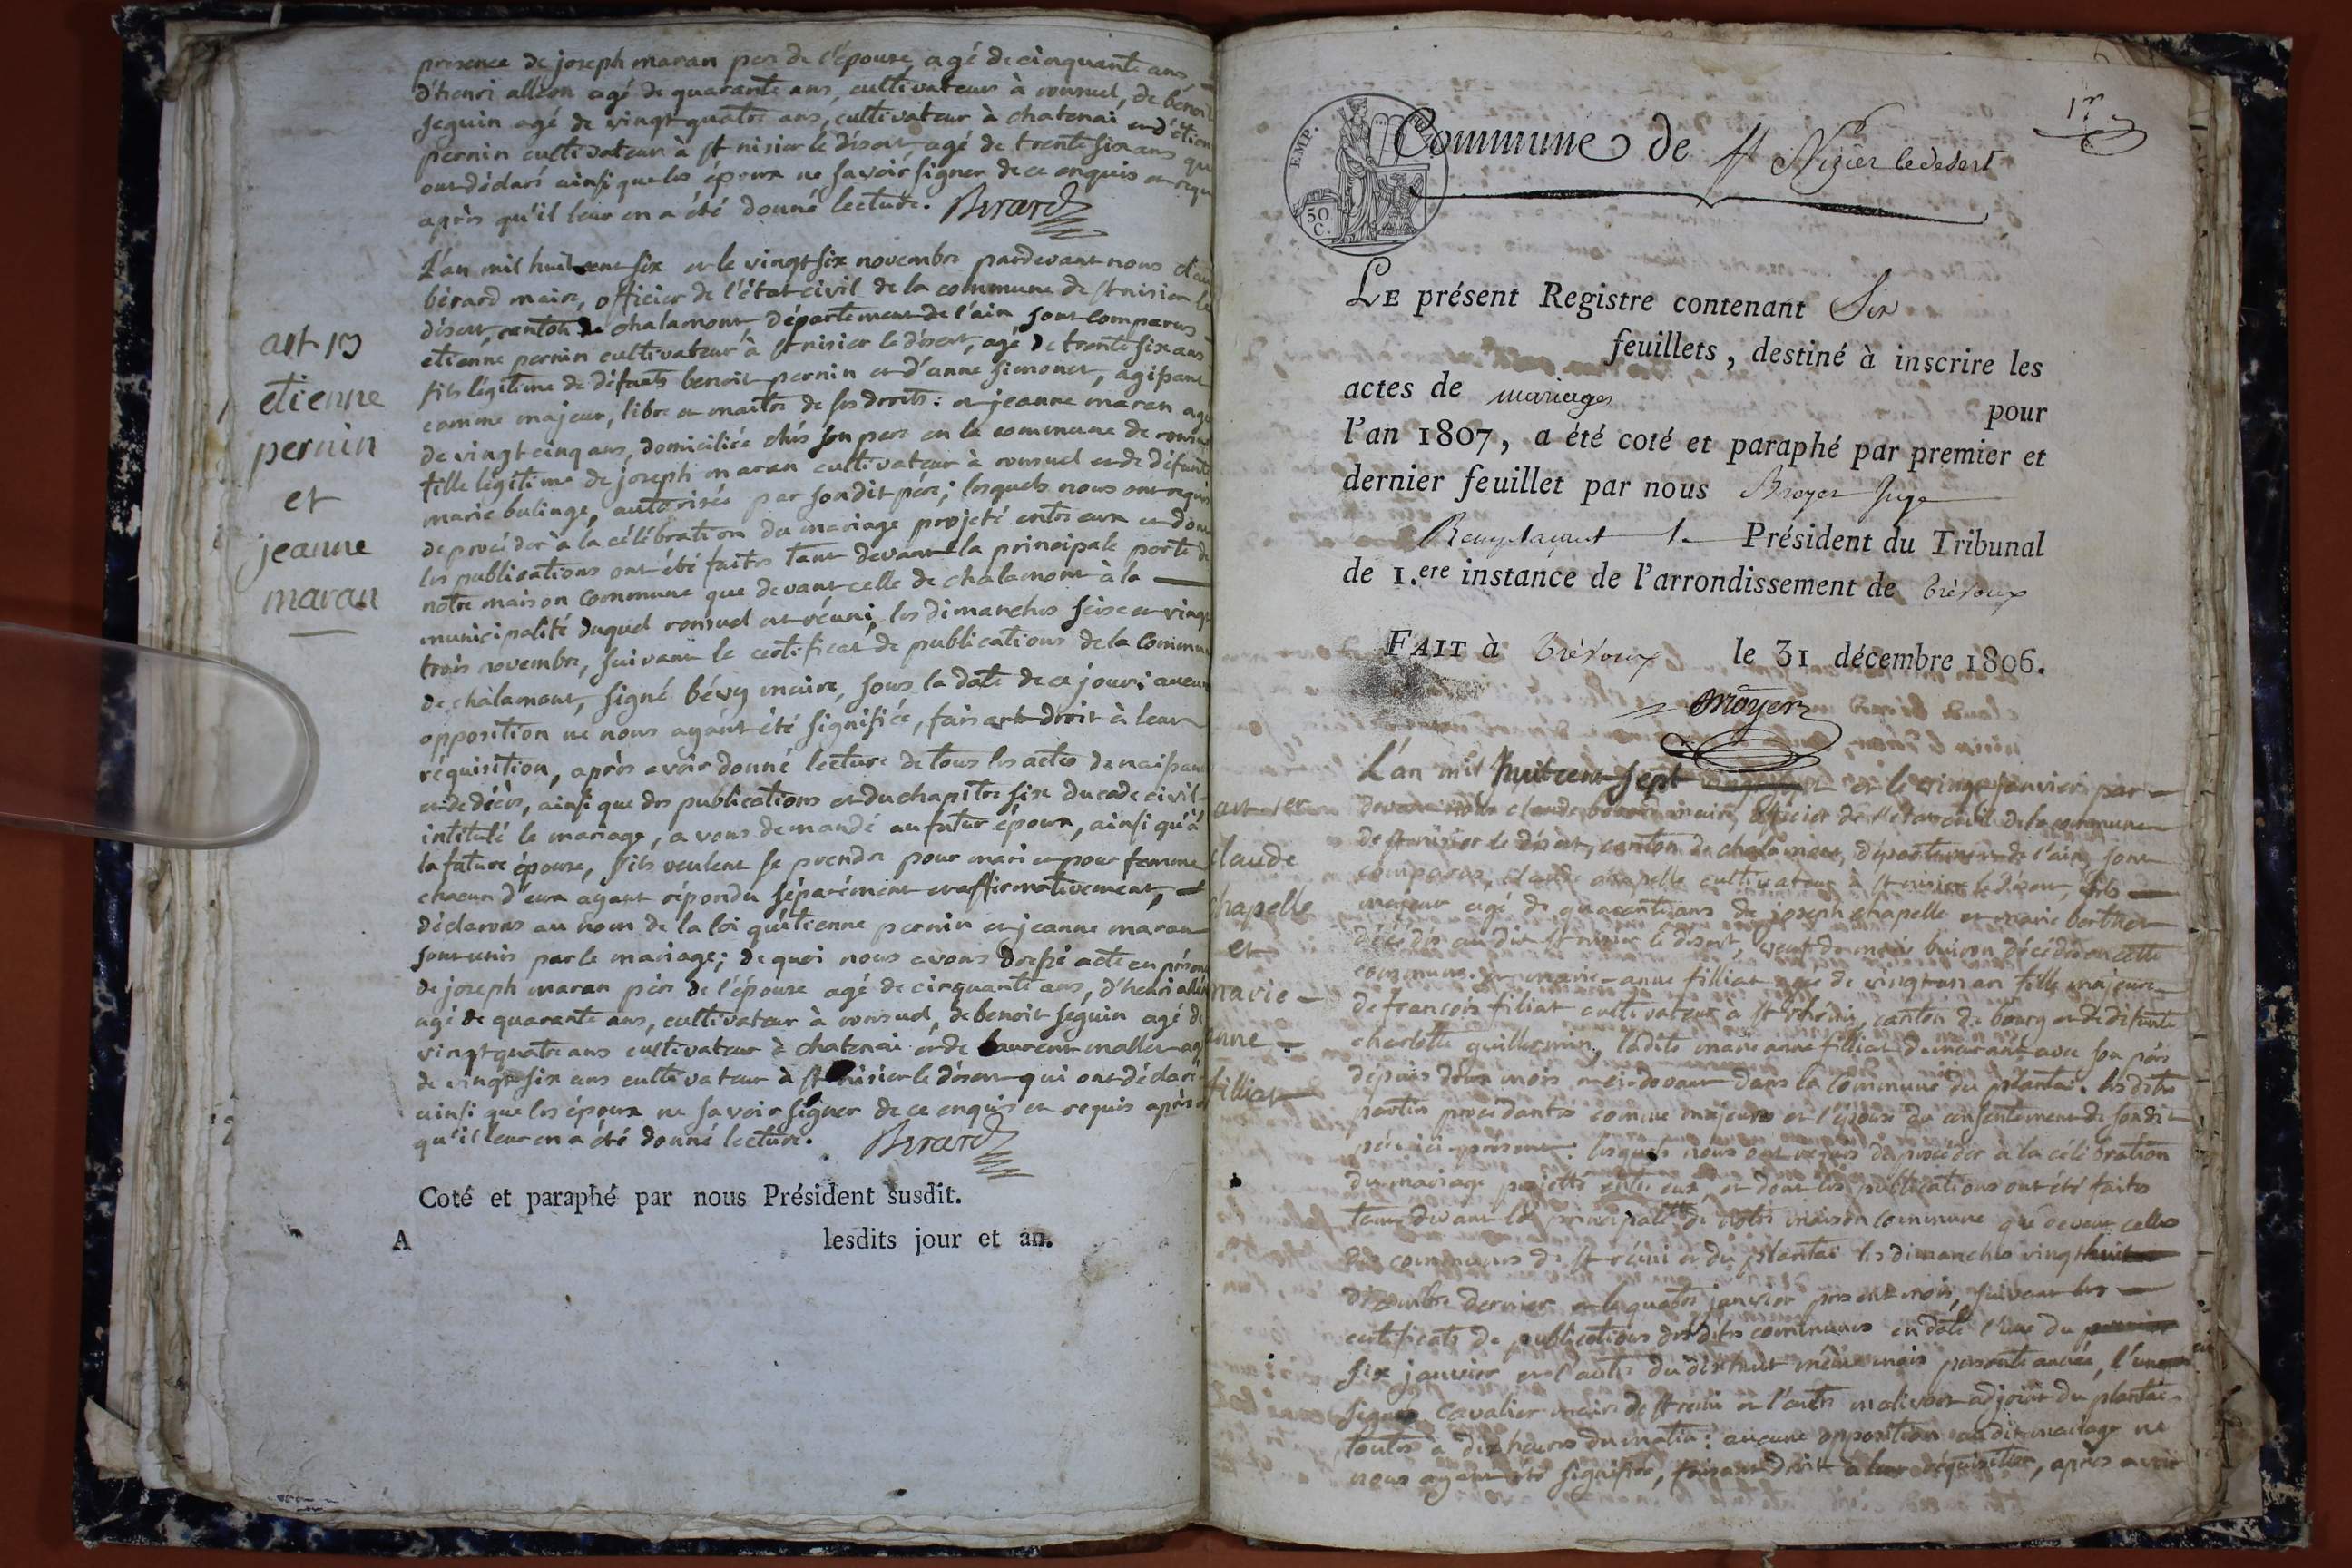 presence de joseph maran pere de l'épouse agé de cinquante ans,
d'henri alléon agé de quarante ans, cultivateur à ronsuel, de benoit
seguin agé de vingt quatre ans, cultivateur à chatenai et d'étien
pernin cultivateur à st nisier le désert, agé de trente six ans qui
ont déclaré ainsi que les époux ne savoir signer de ce enquis et requ
après qu'il leur en a été donné lecture. Berard
L'an mil huit cent six et le vingt six novembre pardevant nous clau
bérard maire, officier de l'état civil de la commune de st nisier le
désert, canton de chalamont, département de l'ain sont comparus
etienne pernin cultivateur à st nisier le désert, agé de trente six ans
fils légitime de défunts benoit pernin et d'anne simonet, agissant
comme majeur, libre et maitre de ses droits : et jeanne maran agé
de vingt cinq ans, domiciliée chés son pere en la commune de ronsu
fille légitime de joseph maran cultivateur à ronsuel et de défunte
marie bulinge, autorisée par sondit père ; lesquels nous ont requis
de procéder à la célébration du mariage projeté entre eux et dont
les publications ont été faites tant devant la principale porte de
notre maison commune que devant celle de chalamont à la
municipalité duquel ronsuel est réuni, les dimanches seise et vingt
trois novembre, suivant le certificat de publications de la commun
de chalamont, signé bévy maire, sous la date de ce jour ; aucun
opposition ne nous ayant été signifiée, faisant droit à leur
réquisition, après avoir donné lecture de tous les actes de naissan
et de décès, ainsi que des publications et du chapitre six du code civil
intitulé le mariage, avons demandé au futur époux, ainsi qu'à
la future épouse, s'ils veulent se prendre pour mari et pour femme
chacun d'eux ayant répondu séparément et affirmativement,
déclarons au nom de la loi qu'étienne pernin et jeanne maran
sont unis par le mariage ; de quoi nous avons dressé acte en présen
de joseph maran père de l'épouse agé de cinquante ans, d'henri alléon
agé de quarante ans, cultivateur à ronsuel, de benoit seguin agé de
vingt quatre ans cultivateur à chatenai et de laurent mallet agé
de vingt six ans cultivateur à st nisier le désert qui ont déclaré
ainsi que les époux ne savoir signer de ce enquis et requis après
qu'il leur en a été donné lecture. Berard
art 13
etienne
pernin
et
jeanne
maran
Coté et paraphé par nous Président susdit.
A lesdits jour et an.
1er
EMP.
50
C.
Commune de st Nizier le desert
LE présent Registre contenant Six
feuillets, destiné à inscrire les
actes de mariages pour
l'an 1807, a été coté et paraphé par premier et
dernier feuillet par nous Broyer Juge
Remplaçant le Président du Tribunal
de 1.ere instance de l'arrondissement de trévoux
FAIT à trévoux le 31 décembre 1806.
Broyer
art 1er
claude
chapelle
et
marie
anne
filliat
L'an mil huit cent sept et le vingt janvier par
devant nous claude bérard maire, officier de l'état civil de la commune
de st nisier le désert, canton de chalamont, département de l'ain, sont
comparus, claude chapelle cultivateur à st nisier le désert, fils
majeur agé de quarante ans de joseph chapelle et marie berthet
décédés au dit st nisier le désert, veuf de marie buiron décédée en cette
commune. et marie-anne filliat agée de vingt un an fille majeure
de françois filiat cultivateur à st rhémi, canton de bourg et de défunte
charlotte guillermin, ladite marie anne filliat demeurant avec son père
depuis deux mois et ci-devant dans la commune du plantai. lesdites
parties procédantes comme majeures et l'épouse du consentement de sondit
père ici présent. lesquels nous ont requis de procéder à la célébration
du mariage projetté entre eux, et dont les publications ont été faites
tant devant la principale de notre maison commune que devant celles
des communes de st rémi et du plantai les dimanches vingt huit
décembre dernier et le quatre janvier présent mois, suivant les
certificats de publications desdites communes en date l'une du
six janvier et l'autre du dix huit même mois présente année, l'une
signée cavalier maire de st remi et l'autre malivert adjoint du plantai
toutes à dix heures du matin : aucune opposition audit mariage ne
nous ayant été signifiée, faisant droit à leur réquisition, après avoir